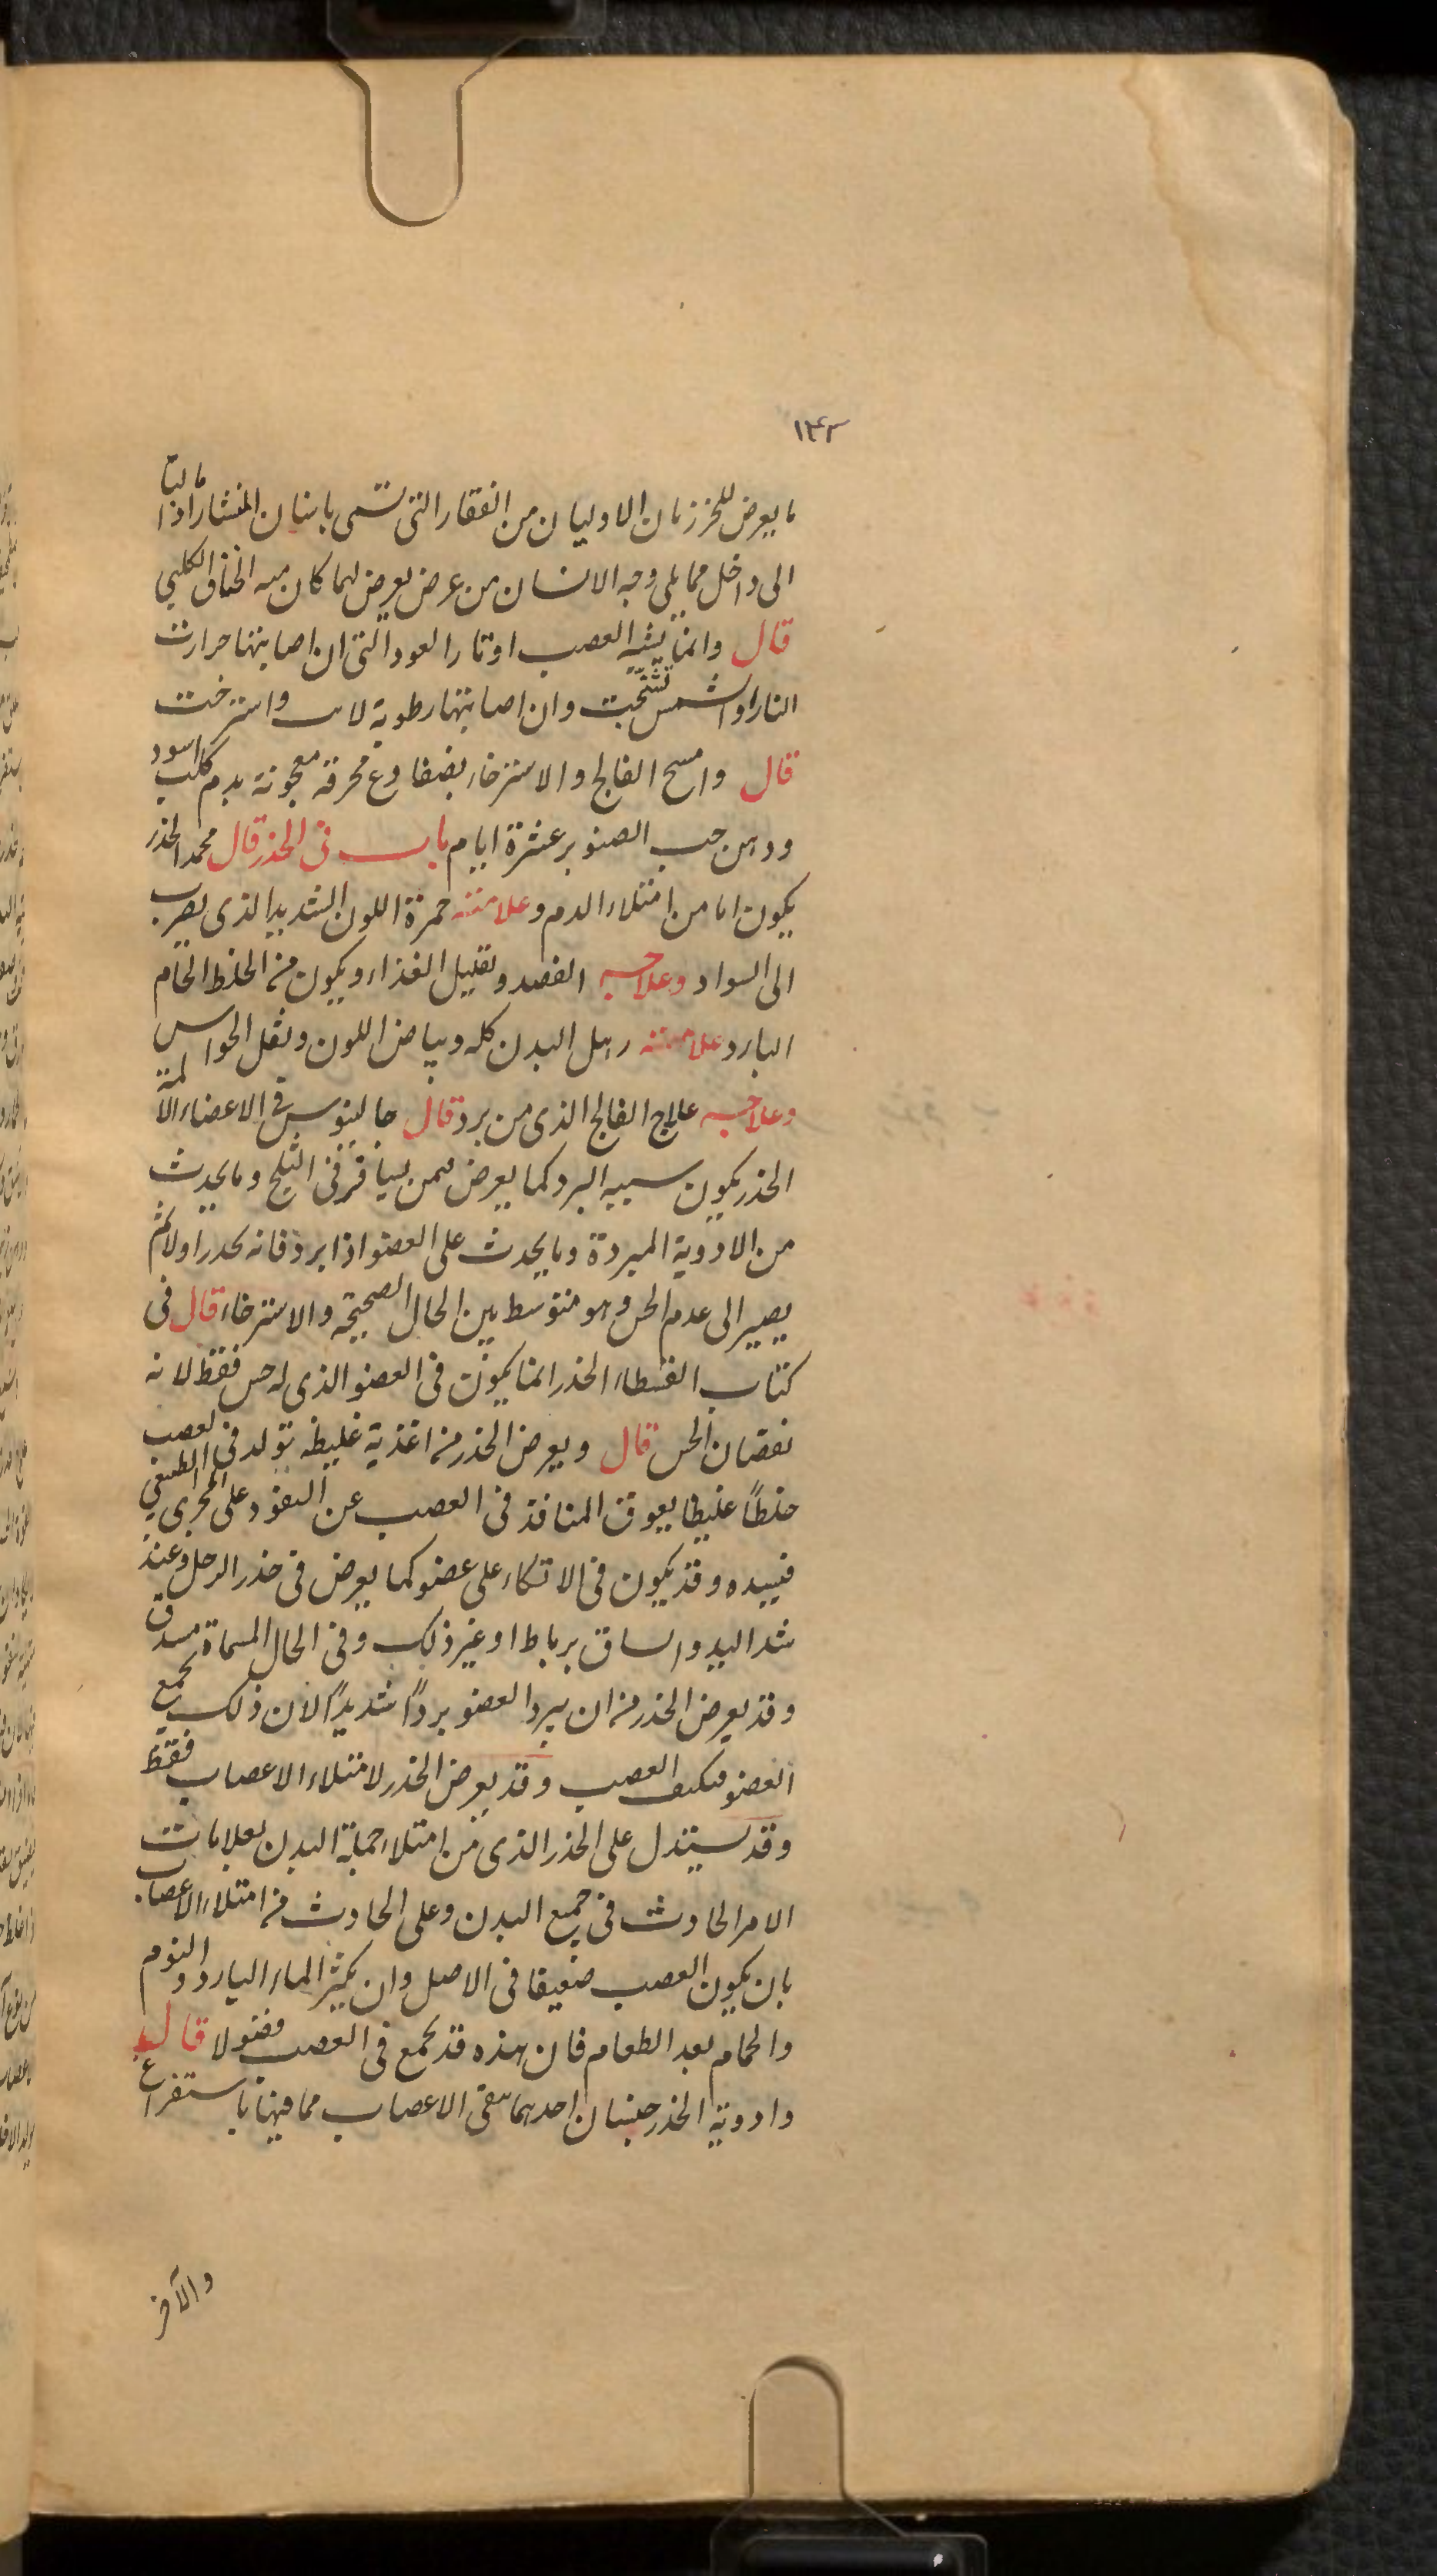 ١٤٢
ما يعرض للخرزتان الاوليان من الفقار التى تسمى باسنان المنشار اذا مالتا
الى داخل مما يلى وجه الانسان من عرض يعرض لهما كان منه الخناق الكلبي
قال وانما يشبه العصب اوتار العود التى ان اصابتها حرارت
النار او الشمس تشنجت وان اصابتها رطوبة لانت واسترخت
قال وامسح الفالج والاسترخاء بضفادع محرقة معجونة بدم كلب اسود
ودهن حب الصنوبر عشرة ايام باب فى الخدر قال محمد الخدر
يكون اما من امتلاء الدم وعلامته حمرة اللون الشديد الذى يضرب
الى السواد وعلاجه الفصد وتقليل الغذاء ويكون من الخلط الخام
البارد علامته رهل البدن كله وبياض اللون وثقل الحواس
وعلاجه علاج الفالج الذى من برد قال جالينوس فى الاعضاء الالمة
الخدر يكون سببه البرد كما يعرض لمن يسافر فى الثلج وما يحدث
من الادوية المبردة وما يحدث على العضو اذا برد فانه يخدر اولا ثم
يصير الى عدم الحس وهو متوسط بين الحال الصحيحة والاسترخاء قال فى
كتاب القطاء الخدر انما يكون فى العضو الذى له حس فقط لانه
نقصان الحس قال ويعرض الخدر من اغذية غليظه تولد فى العصب
خلطاً غليظا يعوق المنافذ فى العصب عن النفوذ على المجرى الطبيعي
فيسده وقد يكون فى الاتكاء على عضو كما يعرض فى خدر الرجل وعند
شد اليد والساق برباط او غير ذلك وفى الحال المسماة
وقد يعرض الخدر من ان يبرد العضو برداً شديداً لان ذلك يجمع
العضو فيكثف العصب وقد يعرض الخدر لامتلاء الاعصاب فقط
وقد يستدل على الخدر الذى من امتلاء جملة البدن بعلامات
الامر الحادث فى جميع البدن وعلى الحادث من امتلاء الاعصاب
بان يكون العصب ضعيفا فى الاصل وان يكثر الماء البارد والنوم
والحمام بعد الطعام فان هذه قد تجمع فى العصب فضولا قال
وادوية الخدر جنسان احدهما ينقى الاعصاب مما فيها باستفراغ
والآخر